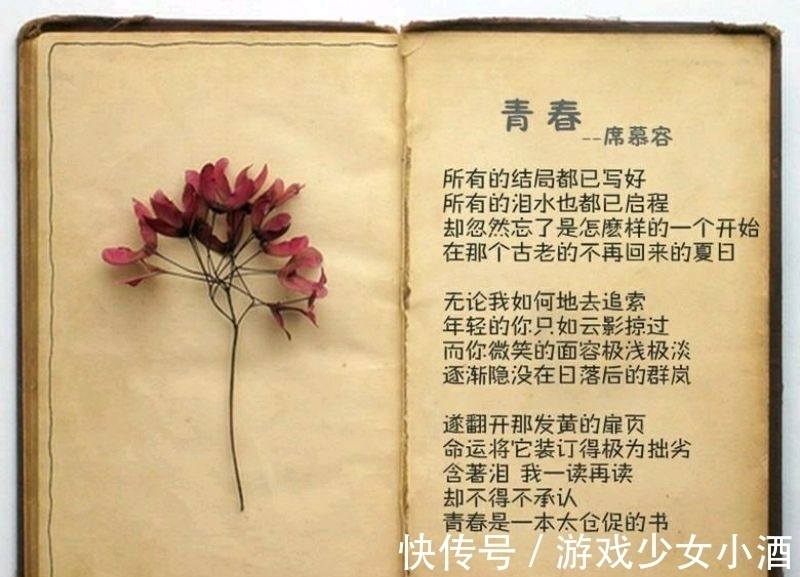 青春
--席慕容
所有的结局都已写好
所有的泪水也都已启程
却忽然忘了是怎麽样的一个开始
在那个古老的不再回来的夏日
无论我如何地去追索
年轻的你只如云影掠过
而你微笑的面容极浅极淡
逐渐隐没在日落后的群岚
遂翻开那发黄的扉页
命运将它装订得极为拙劣
含著泪 我一读再读
却不得不承认
青春是一本太仓促的书
快传号 / 游戏少女小酒